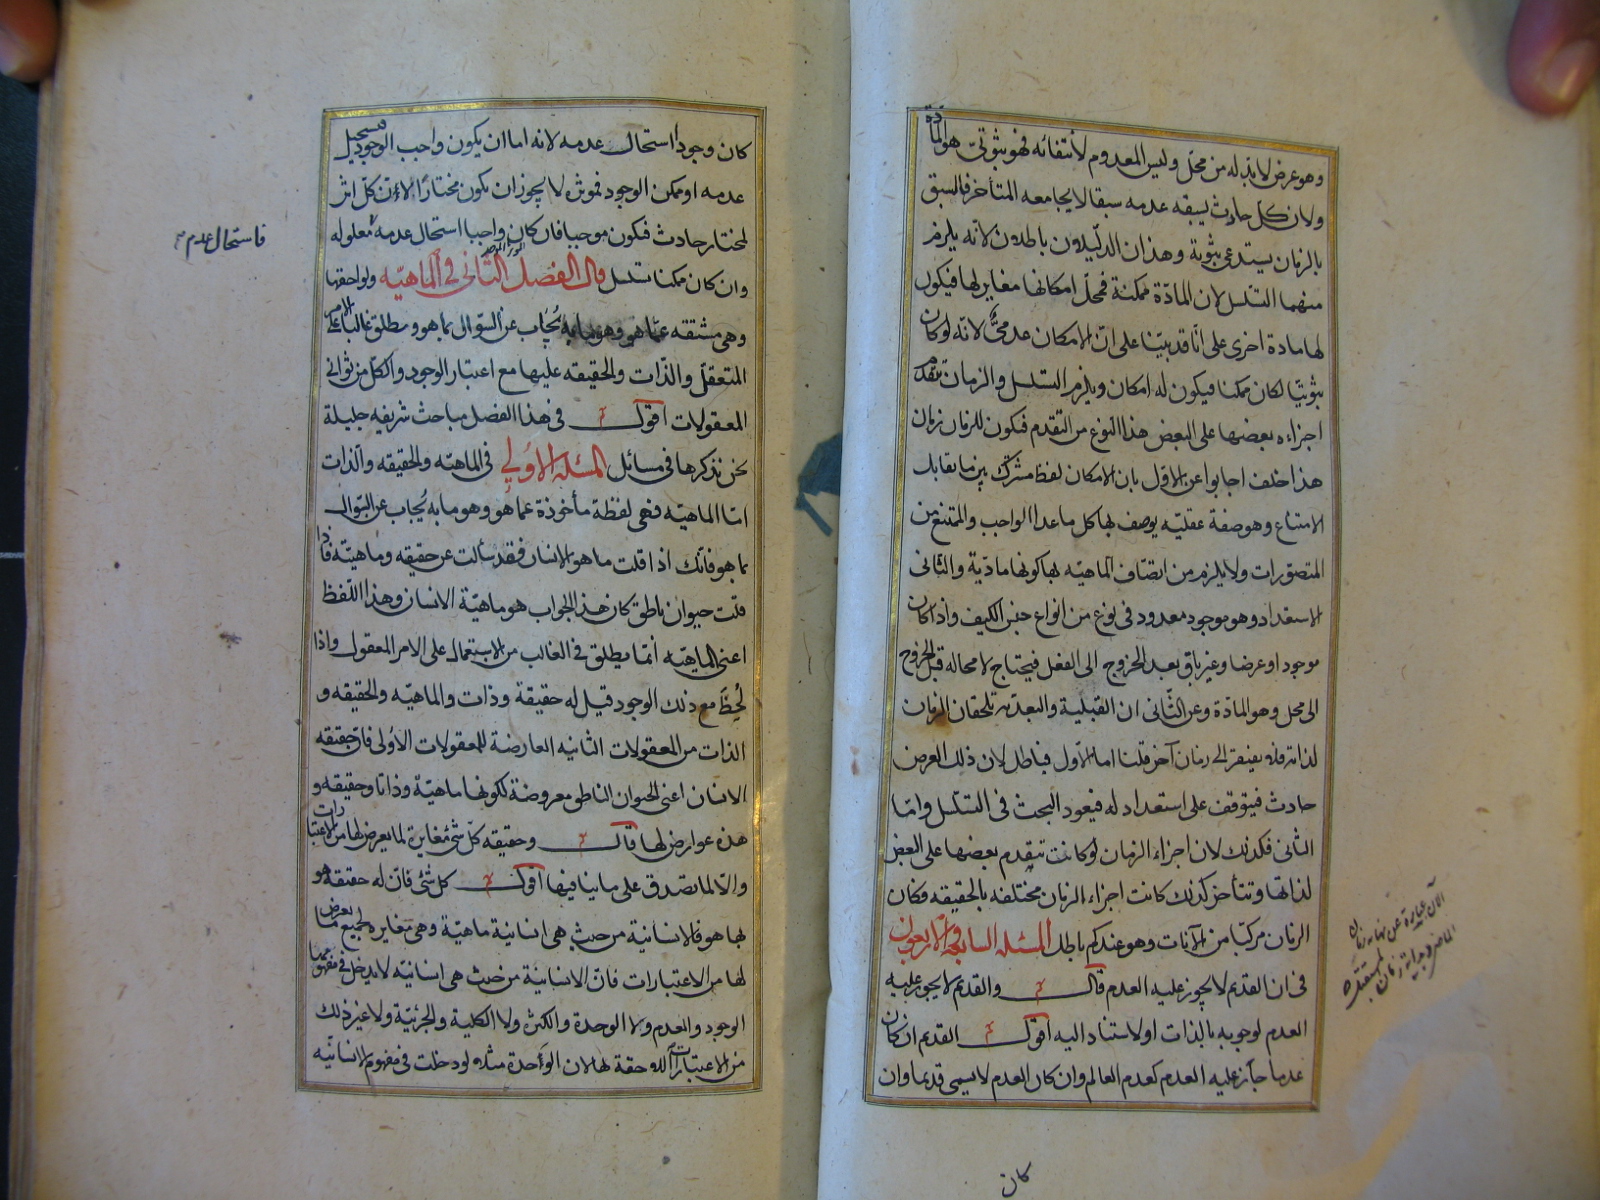 وهو عرض لا بد له من محل وليس المعدوم لانتفائه فهو ثبوتي هو المادة
ولان كل حادث يسبقه عدمه سبقا لا يجامعه المتأخر فالسبق
بالزمان يستدعي ثبوته وهذان الدليلان باطلان لانه يلزم
منهما التسلسل لان المادة ممكنة فمحل امكانها مغاير لها فيكون
لها مادة اخرى على انا قد بينا على ان الامكان عدمي لانه لو كان
ثبوتيا لكان ممكنا فيكون له امكان ويلزم التسلسل والزمان يتقدم
اجزاءه بعضها على البعض هذا النوع من التقدم فيكون للزمان زمان
هذا خلف اجابوا عن الاول بان الامكان لفظ مشترك بين ما يقابل
الامتناع وهو صفة عقليه يوصف بها كل ما عدا الواجب والممتنع من
المتصورات ولا يلزم من اتصاف الماهيه بها كونها مادية والثاني
الاستعداد وهو موجود معدود في نوع من انواع جنس الكيف واذا كان
موجودا وعرضا وغير باق بعد الخروج الى الفعل فيحتاج لا محاله قبل الخروج
الى محل وهو المادة وعن الثاني ان القبلية والبعدية تلحقان الزمان
لذاته فلا يفتقر الى زمان آخر قلنا اما الاول فباطل لان ذلك العرض
حادث فيتوقف على استعداد له فيعود البحث في التسلسل واما
الثاني فكذلك لان اجزاء الزمان لو كانت تتقدم بعضها على البعض
لذاتها وتتأخر كذلك كانت اجزاء الزمان مختلفه بالحقيقه فكان
الزمان مركبا من الآنات وهو عندكم باطل المسئلة السابعة والاربعون
في ان القديم لا يجوز عليه العدم قال والقديم لا يجوز عليه
العدم لوجوبه بالذات او لاستناده اليه اقول القديم ان كان
عدما جاز عليه العدم كعدم العالم وان كان العدم لا يسمى قديما وان
الآن عبارة عن نهاية زمان
الماضي وبداية زمان مستقبله
كان
كان وجودا استحال عدمه لانه اما ان يكون واجب الوجود فيستحيل
عدمه او ممكن الوجود فموثره لا يجوز ان يكون مختارا لان كل اثر
لمختار حادث فيكون موجبا فان كان واجبا استحال عدمه معلوله
فاستحال عدم
وان كان ممكنا تسلسل قال الفصل الثاني في الماهيه ولواحقها
وهي مشتقه عما هو وهو ما به يجاب عن السوال بما هو ويطلق غالبا على الامر
المتعقل والذات والحقيقه عليها مع اعتبار الوجود والكل من ثواني
المعقولات اقول في هذا الفصل مباحث شريفه جليلة
نحن نذكرها في مسائل المسئلة الاولى في الماهيه والحقيقه والذات
اما الماهيه فهي لفظة مأخوذة عما هو وهو ما به يجاب عن السوال
بما هو فانك اذا قلت ما هو الانسان فقد سألت عن حقيقه وماهيته فاذا
قلت حيوان ناطق كان هذا الجواب هو ماهية الانسان وهذا اللفظ
اعني الماهيه انما يطلق في الغالب من الاستعمال على الامر المعقول واذا
لحظ مع ذلك الوجود قيل له حقيقة وذات والماهيه والحقيقه و
الذات من المعقولات الثانيه العارضة للمعقولات الاولى فان حقيقه
الانسان اعني الحيوان الناطق معروضة لكونها ماهية وذاتا وحقيقه و
هذه عوارض لها قال وحقيقه كل شئ مغايرة لما يعرض لها من الاعتبارات
والا لما تصدق على ما ينافيها اقول كل شئ فان له حقيقه هو
بها هو فالانسانية من حيث هي انسانية ماهية وهي مغايره لجميع ما يعرض
لها من الاعتبارات فان الانسانية من حيث هي انسانيه لا يدخل في مفهومها
الوجود والعدم ولا الوحدة والكثرة ولا الكلية والجزئية ولا غير ذلك
من الاعتبارات اللاحقة لها لان الواحدة مثلا لو دخلت في مفهوم الانسانيه